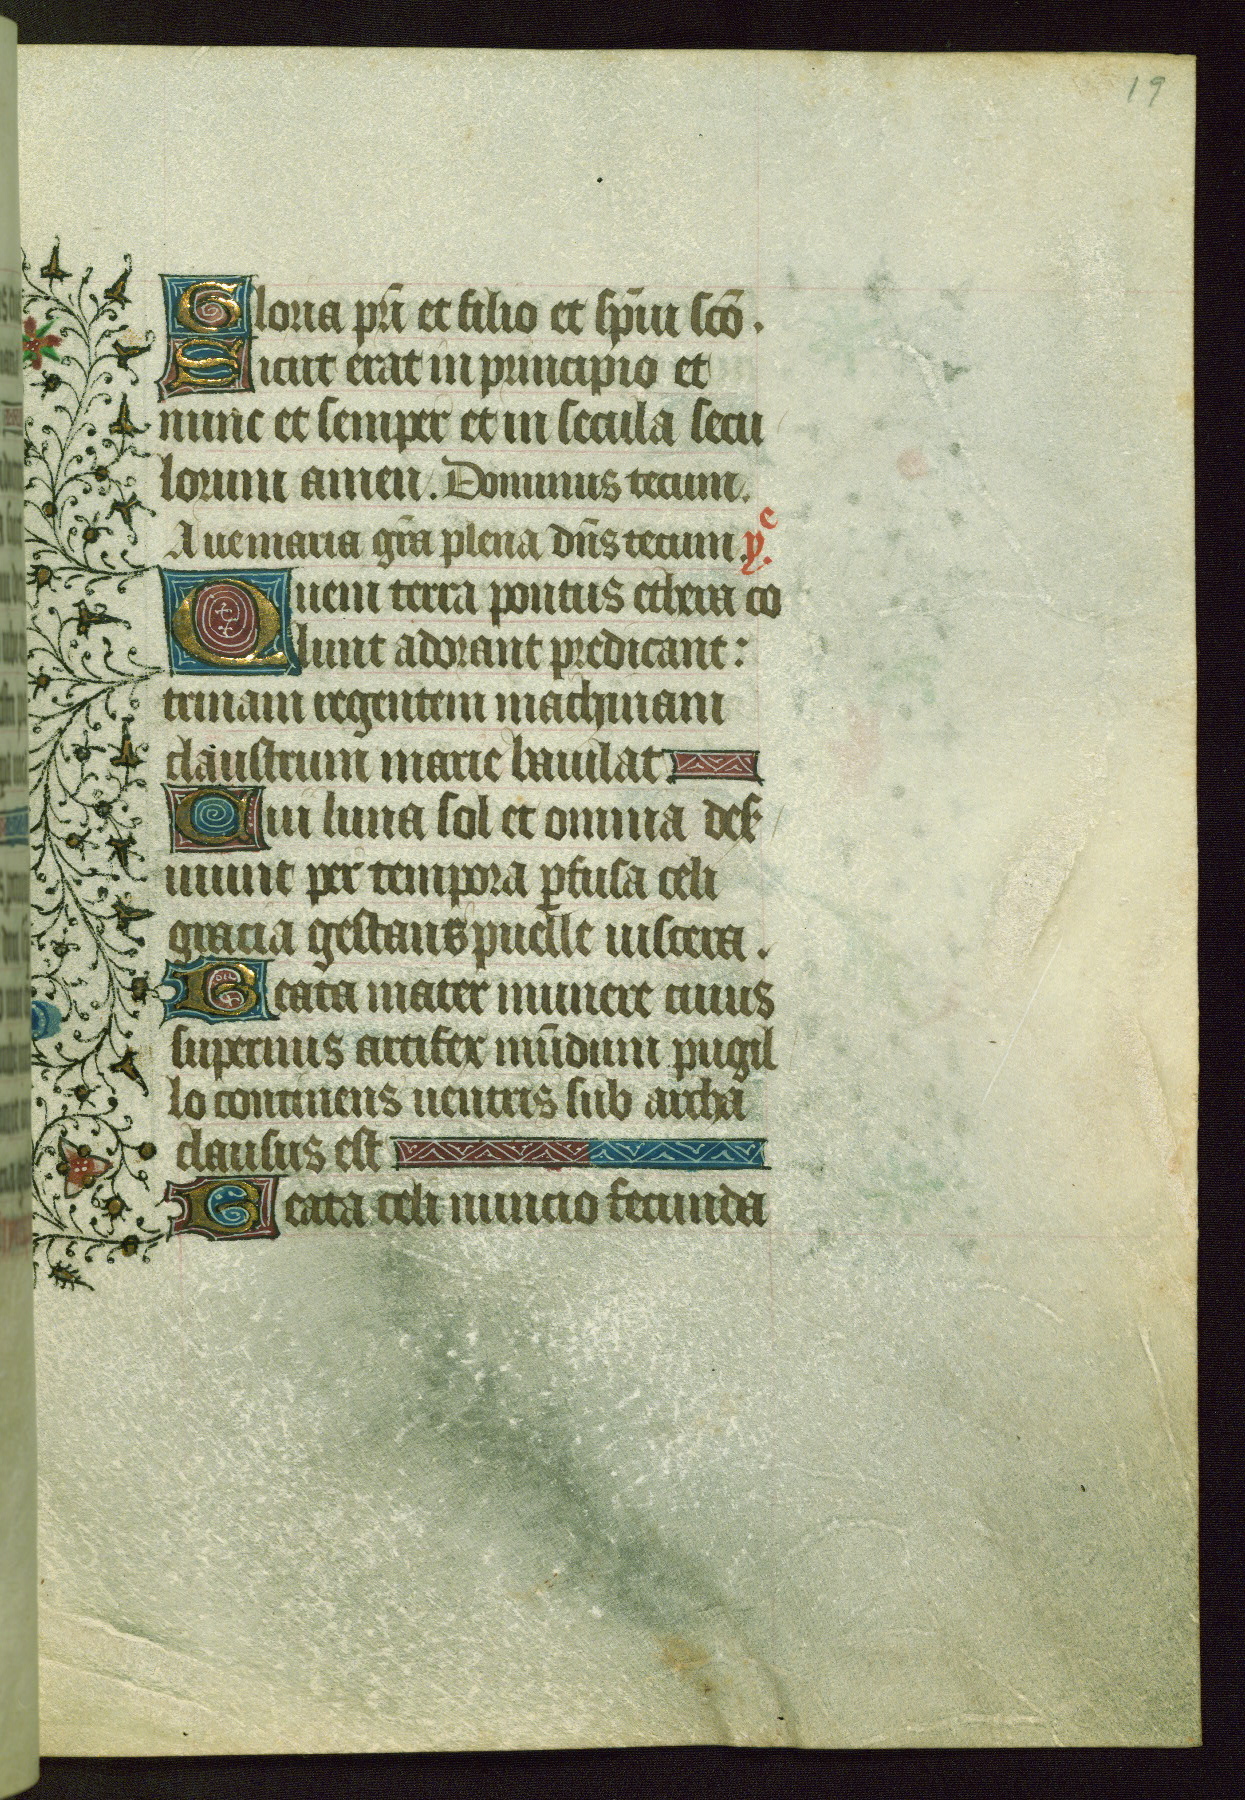 19
Gloria pr̄i et filio et sp̄iu scō.
Sicut erat in principio et
nunc et semper et in secula secu
lorum amen. Dominus tecum.
Aue maria gr̄a plena dn̄s tecum. yc̄.
Quem terra pontus ethera co
lunt adorant predicant:
trinam regentem machinam
claustrum marie baiulat.
Cui luna sol et omnia des
uiunt per tempora ꝑfusa celi
gracia gestans puelle uiscera.
Beata mater munere cuius
supernus artifex mūdum pugil
lo continens uentris sub archa
clausus est
Beata celi nuncio fecunda